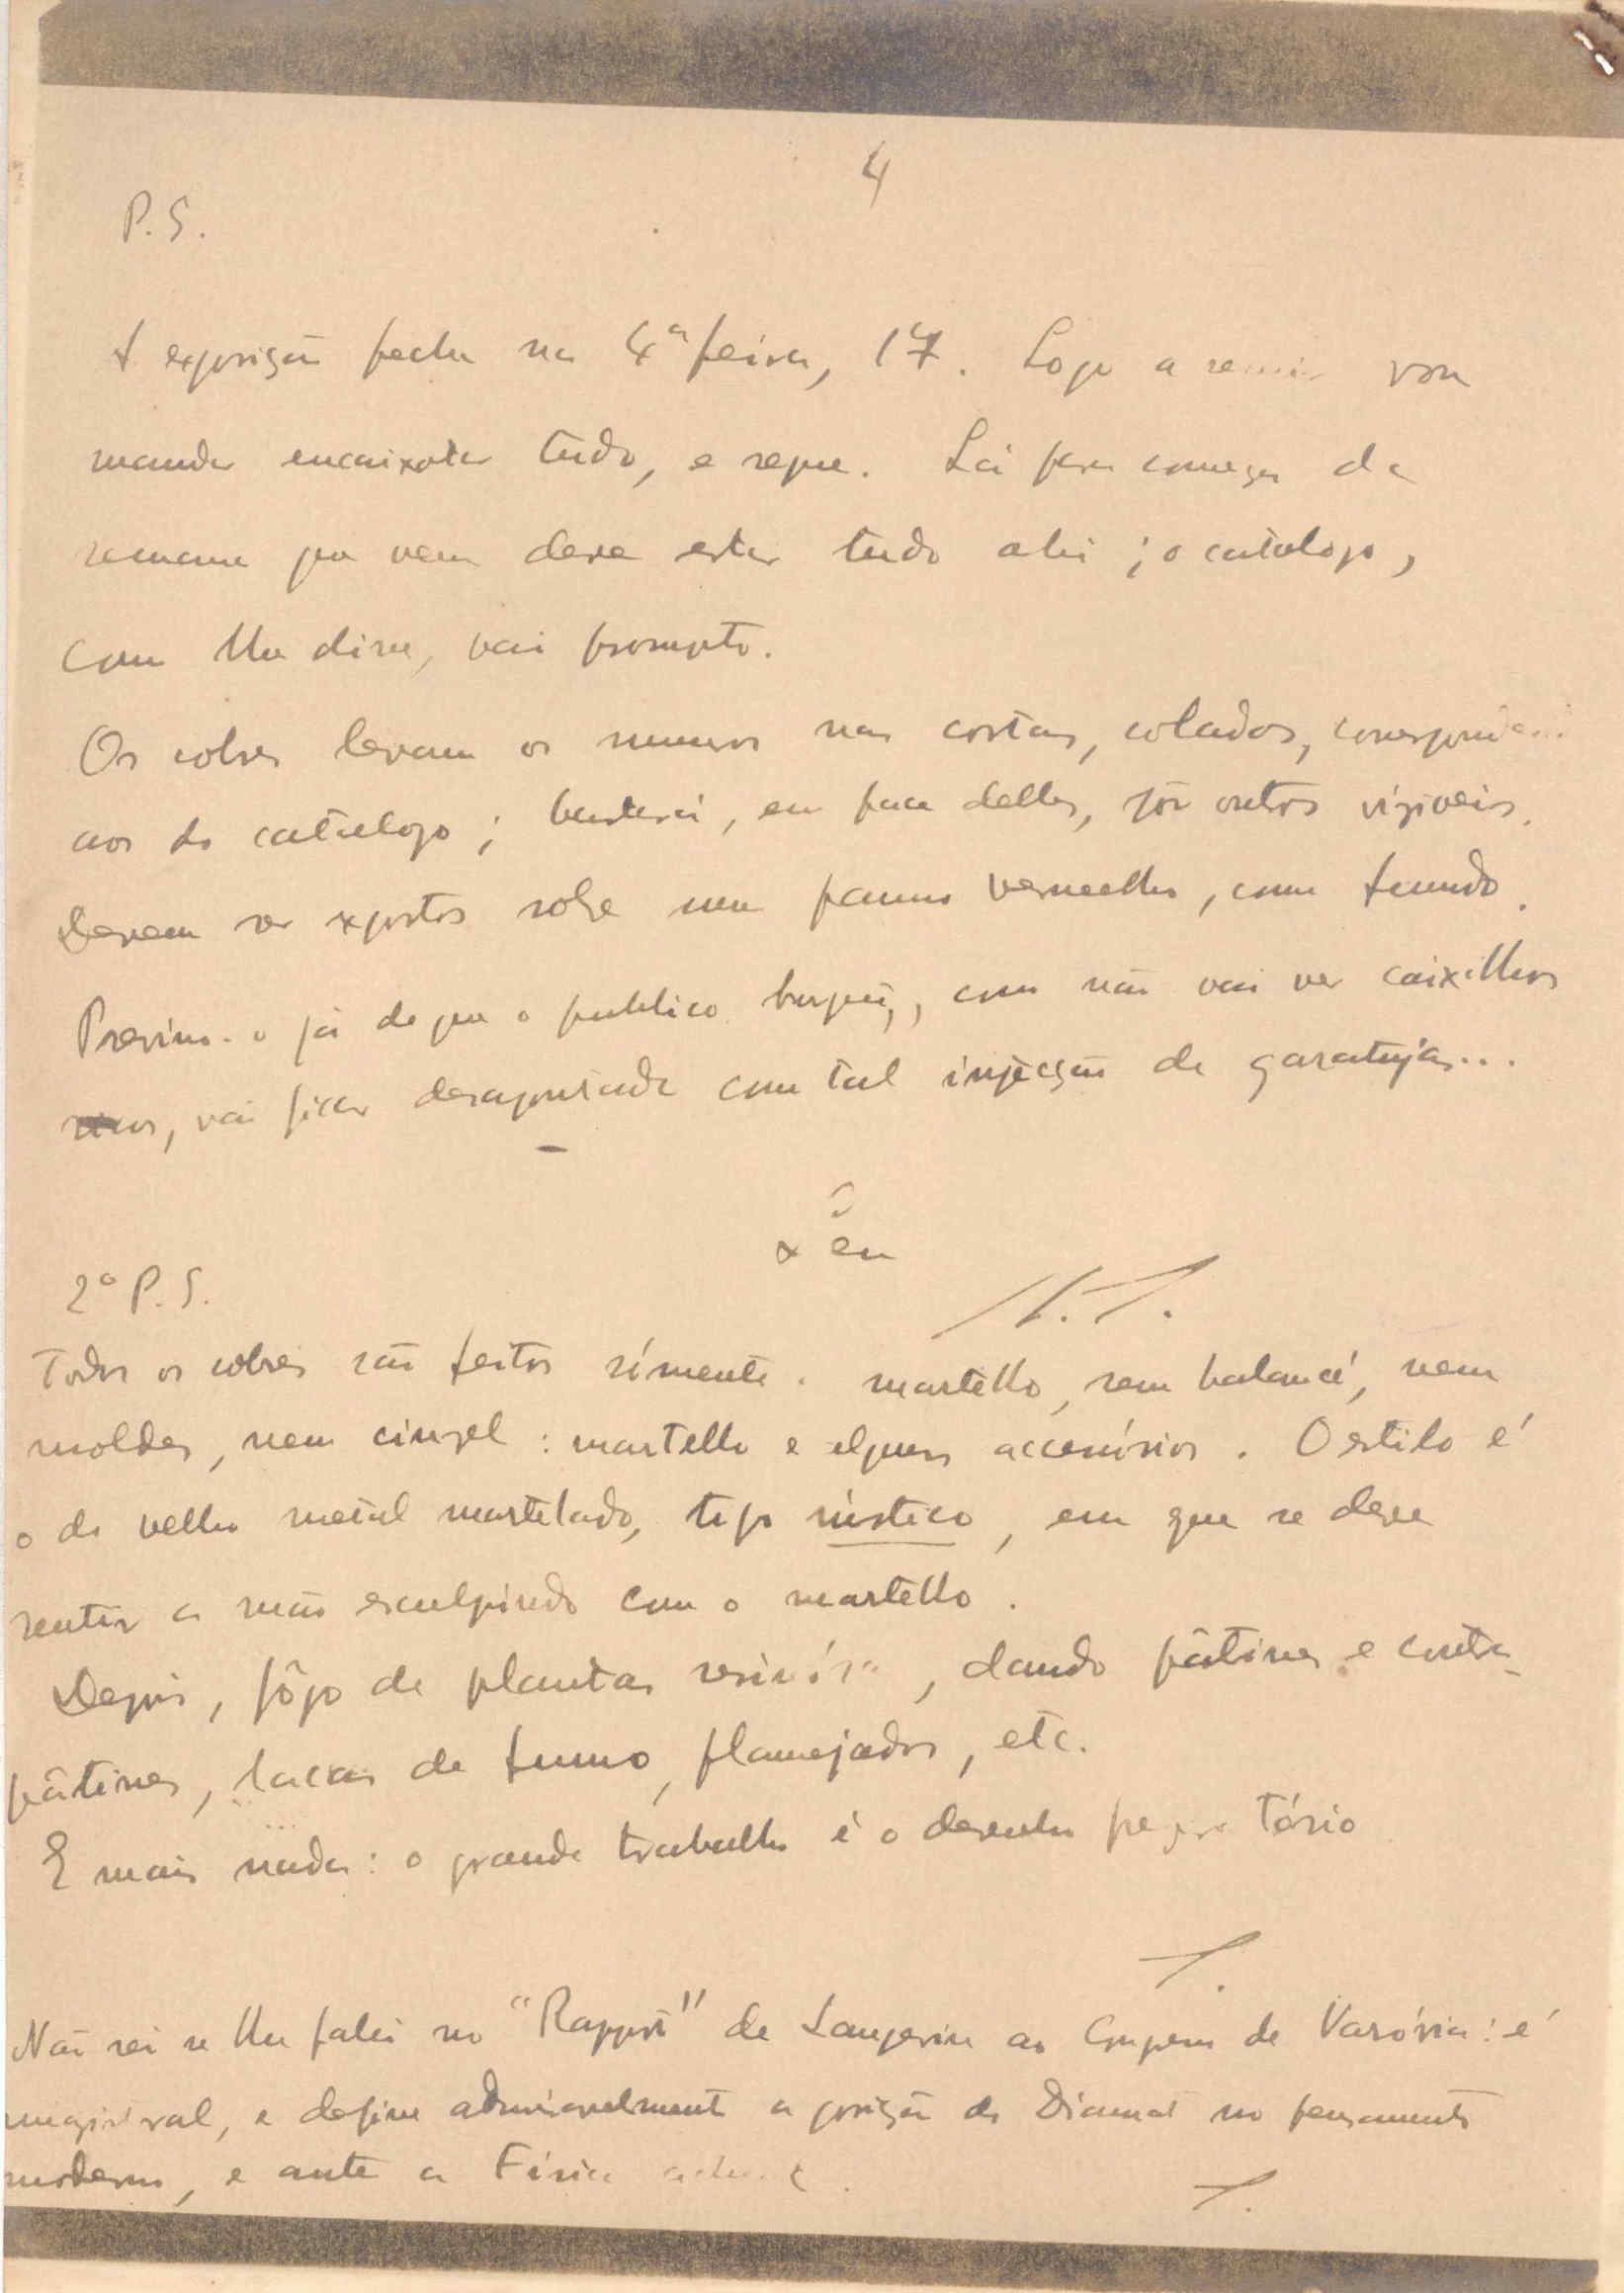 4
P.S.
A exposição fecha na 4ª feira, 17. Logo a seguir vou
mandar encaixotar tudo, e segue. Lá para começo da
semana que vem deve estar tudo ahi; o catalogo,
como lhe disse, vai prompto.
Os cobres levam os numeros nas costas, colados, correspondendo
aos do catalogo; bastará, em face delles, pôr outros vizíveis.
Devem ser expostos sobre um panno vermelho, como fundo.
Previno-o já de que o publico burguês, como não vai ver caixilhos
vai ficar desapontado com tal injecção de garatujas...
2º P.S.
Todos os cobres são feitos sómente a martello, sem balancé, nem
moldes, nem cinzel: martello e alguns accessórios. O estilo é
o do velho metal martelado, tipo rústico, em que se deve
sentir a mão esculpindo com o martello.
Depois, fôgo de plantas resinósas, dando pátinas e contra-
pátinas, lacas de fumo, flamejados, etc.
E mais nada: o grande trabalho é o desenho preparatório
T.
Não sei se lhe falei no "Rapport" de Langevin ao Congresso de Varsóvia: é
magistral, e define admiravelmente a posição do Diamat no pensamento
moderno, e ante a Física actual.
T.